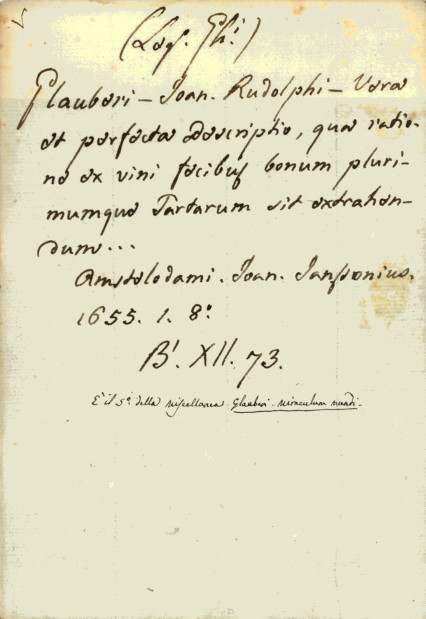 (Leg. Ghi)
Glauberi – Joan. Rudolphi – Vera
et perfecta descriptio, qua ratio-
ne ex vini fecibus bonum pluri-
mumque Tartarum sit extrahen-
dum...
Amstelodami. Joan. Janssonius.
1655. 1. 8°
B'. XII. 73.
E' il 5° della miscellanea. Glauberi. miraculum mundi.